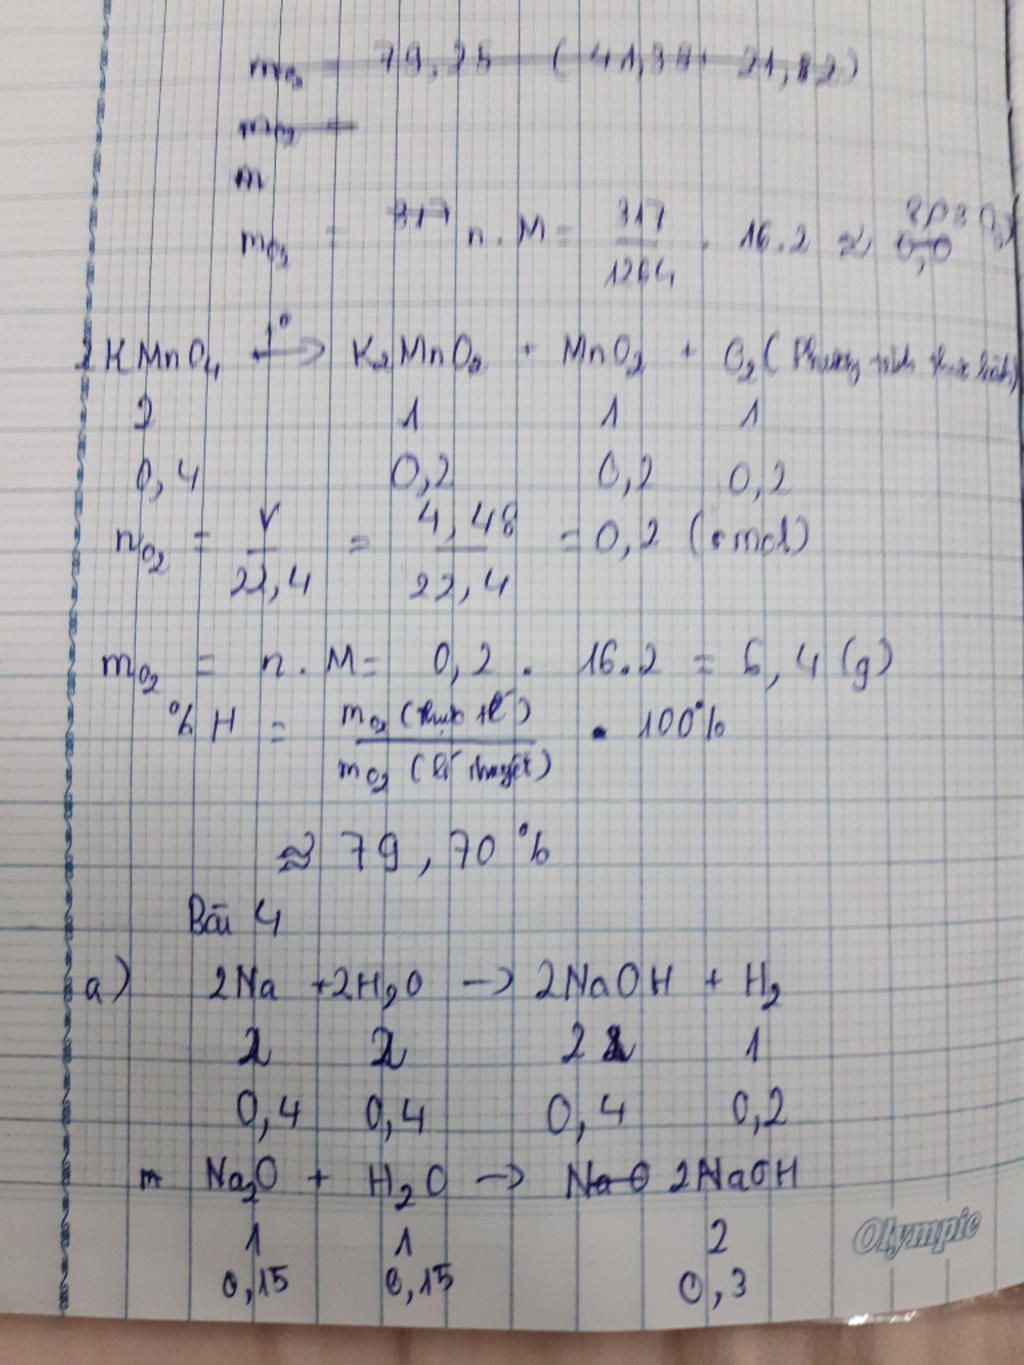 mO2 = 79,25 - ( 41,38 + 21,82)
mO2 =
m
mO2 = 317 n . M = 317/1264 . 16.2 ≈ 8,03 (g)
2KMnO4 t° → K2MnO2 + MnO2 + O2 ( Phương trình thực hành)
2 1 1 1
0,4 0,2 0,2 0,2
nO2 = V/22,4 = 4,48/22,4 = 0,2 (mol)
mO2 = n . M = 0,2 . 16.2 = 6,4 (g)
% H = mO2 (thực tế) / mO2 (lí thuyết) . 100%
≈ 79,70 %
Bài 4
a) 2Na + 2H2O → 2NaOH + H2
2 2 2 1
0,4 0,4 0,4 0,2
m Na2O + H2O → NaO 2NaOH
1 1 2
0,15 0,15 0,3
Olympic